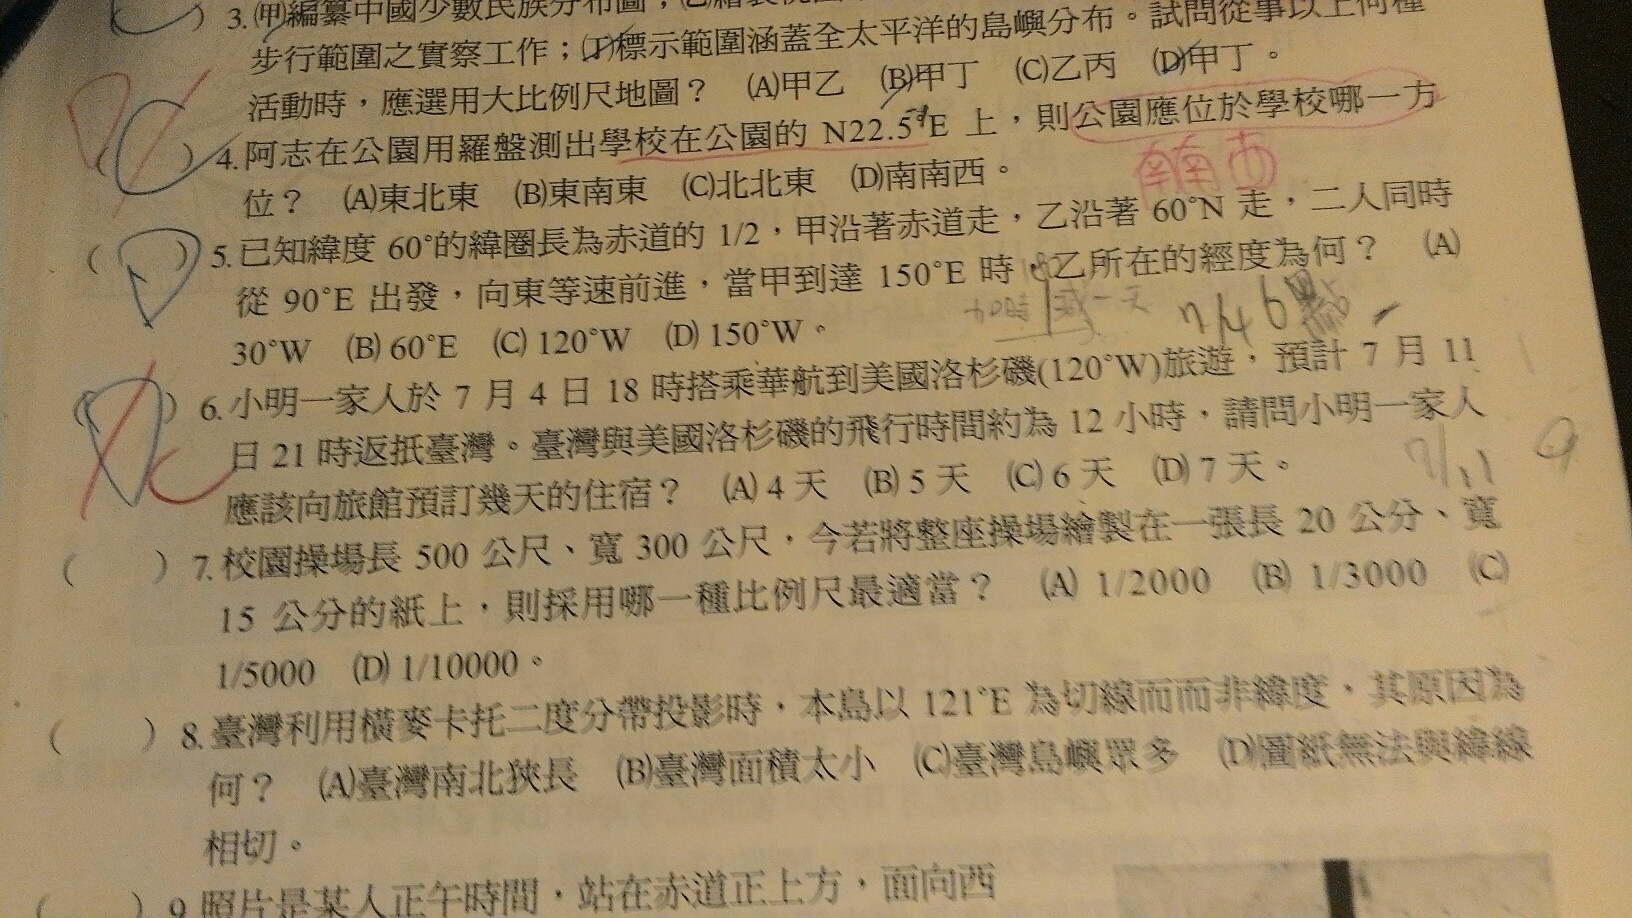 3.(甲)編纂中國少數民族分布圖；
步行範圍之實察工作；(丁)標示範圍涵蓋全太平洋的島嶼分布。試問從事以上何種
活動時，應選用大比例尺地圖？ (A)甲乙 (B)甲丁 (C)乙丙 (D)甲丁。
C
( ) 4.阿志在公園用羅盤測出學校在公園的 N22.5°E 上，則公園應位於學校哪一方
位？ (A)東北東 (B)東南東 (C)北北東 (D)南南西。
南南西
D
( ) 5.已知緯度 60°的緯圈長為赤道的 1/2，甲沿著赤道走，乙沿著 60°N 走，二人同時
從 90°E 出發，向東等速前進，當甲到達 150°E 時，乙所在的經度為何？ (A)
30°W (B) 60°E (C) 120°W (D) 150°W。
減一天
7/4 6點
( ) 6.小明一家人於 7 月 4 日 18 時搭乘華航到美國洛杉磯(120°W)旅遊，預計 7 月 11
日 21 時返抵臺灣。臺灣與美國洛杉磯的飛行時間約為 12 小時，請問小明一家人
7/11 9
C
應該向旅館預訂幾天的住宿？ (A) 4 天 (B) 5 天 (C) 6 天 (D) 7 天。
( ) 7.校園操場長 500 公尺、寬 300 公尺，今若將整座操場繪製在一張長 20 公分、寬
15 公分的紙上，則採用哪一種比例尺最適當？ (A) 1/2000 (B) 1/3000 (C)
1/5000 (D) 1/10000。
( ) 8.臺灣利用橫麥卡托二度分帶投影時，本島以 121°E 為切線而而非緯度，其原因為
何？ (A)臺灣南北狹長 (B)臺灣面積太小 (C)臺灣島嶼眾多 (D)圖紙無法與緯線
相切。
( ) 9.照片是某人正午時間，站在赤道正上方，面向西